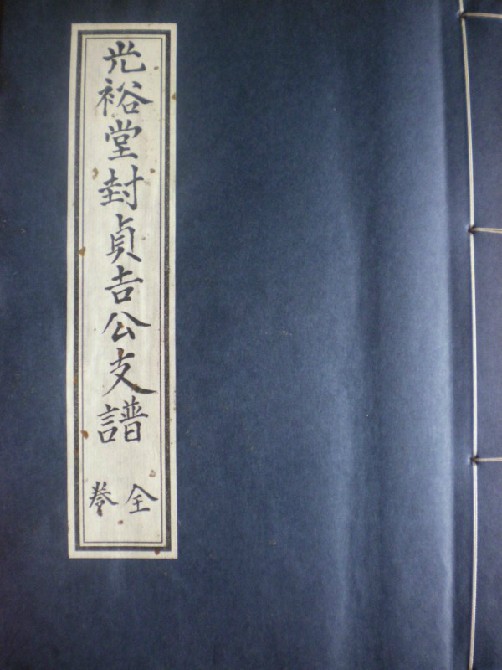 光裕堂封貞吉公支譜
全卷